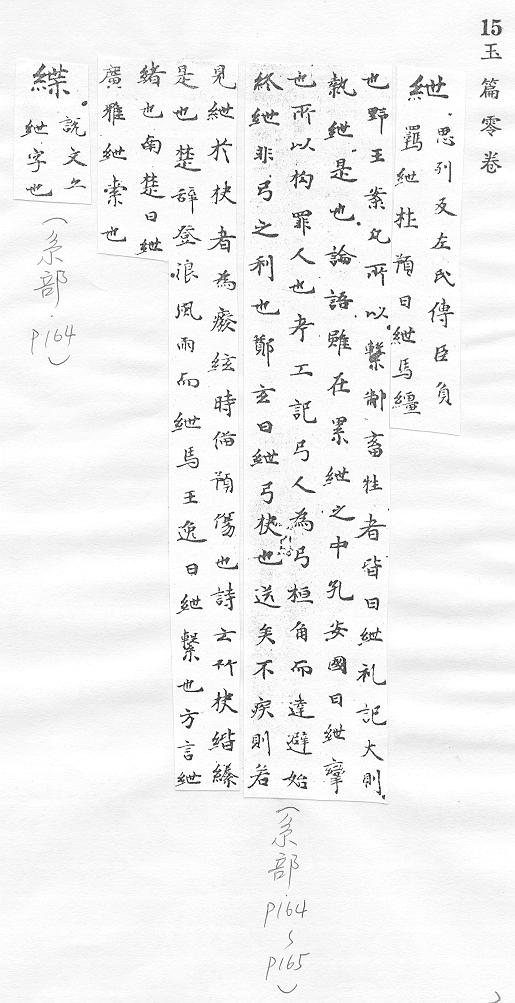 15 玉篇零卷
紲 思列反左氏傳臣負
羈紲杜預曰紲馬繮
也野王案凡所以繫制畜牲者皆曰紲礼記犬則
執紲是也論語雖在累紲之中孔安國曰紲攣
也所以拘罪人也考工記弓人為弓桓角而達避始
終紲非弓之利也鄭玄曰紲弓柲也送矢不疾則若
見紲於柲者為癈弦時俻預傷也詩云竹柲緄縢
是也楚辞登浪風而紲馬王逸曰紲繫也方言紲
緒也南楚曰紲
廣雅紲索也
緤 說文亦
紲字也
(糸部 · P164~P165)
(糸部 · P164)